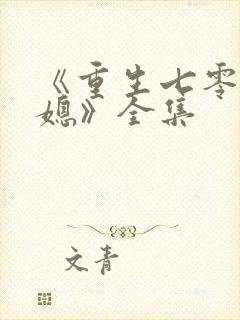 《重生七零
媳》全集
文青